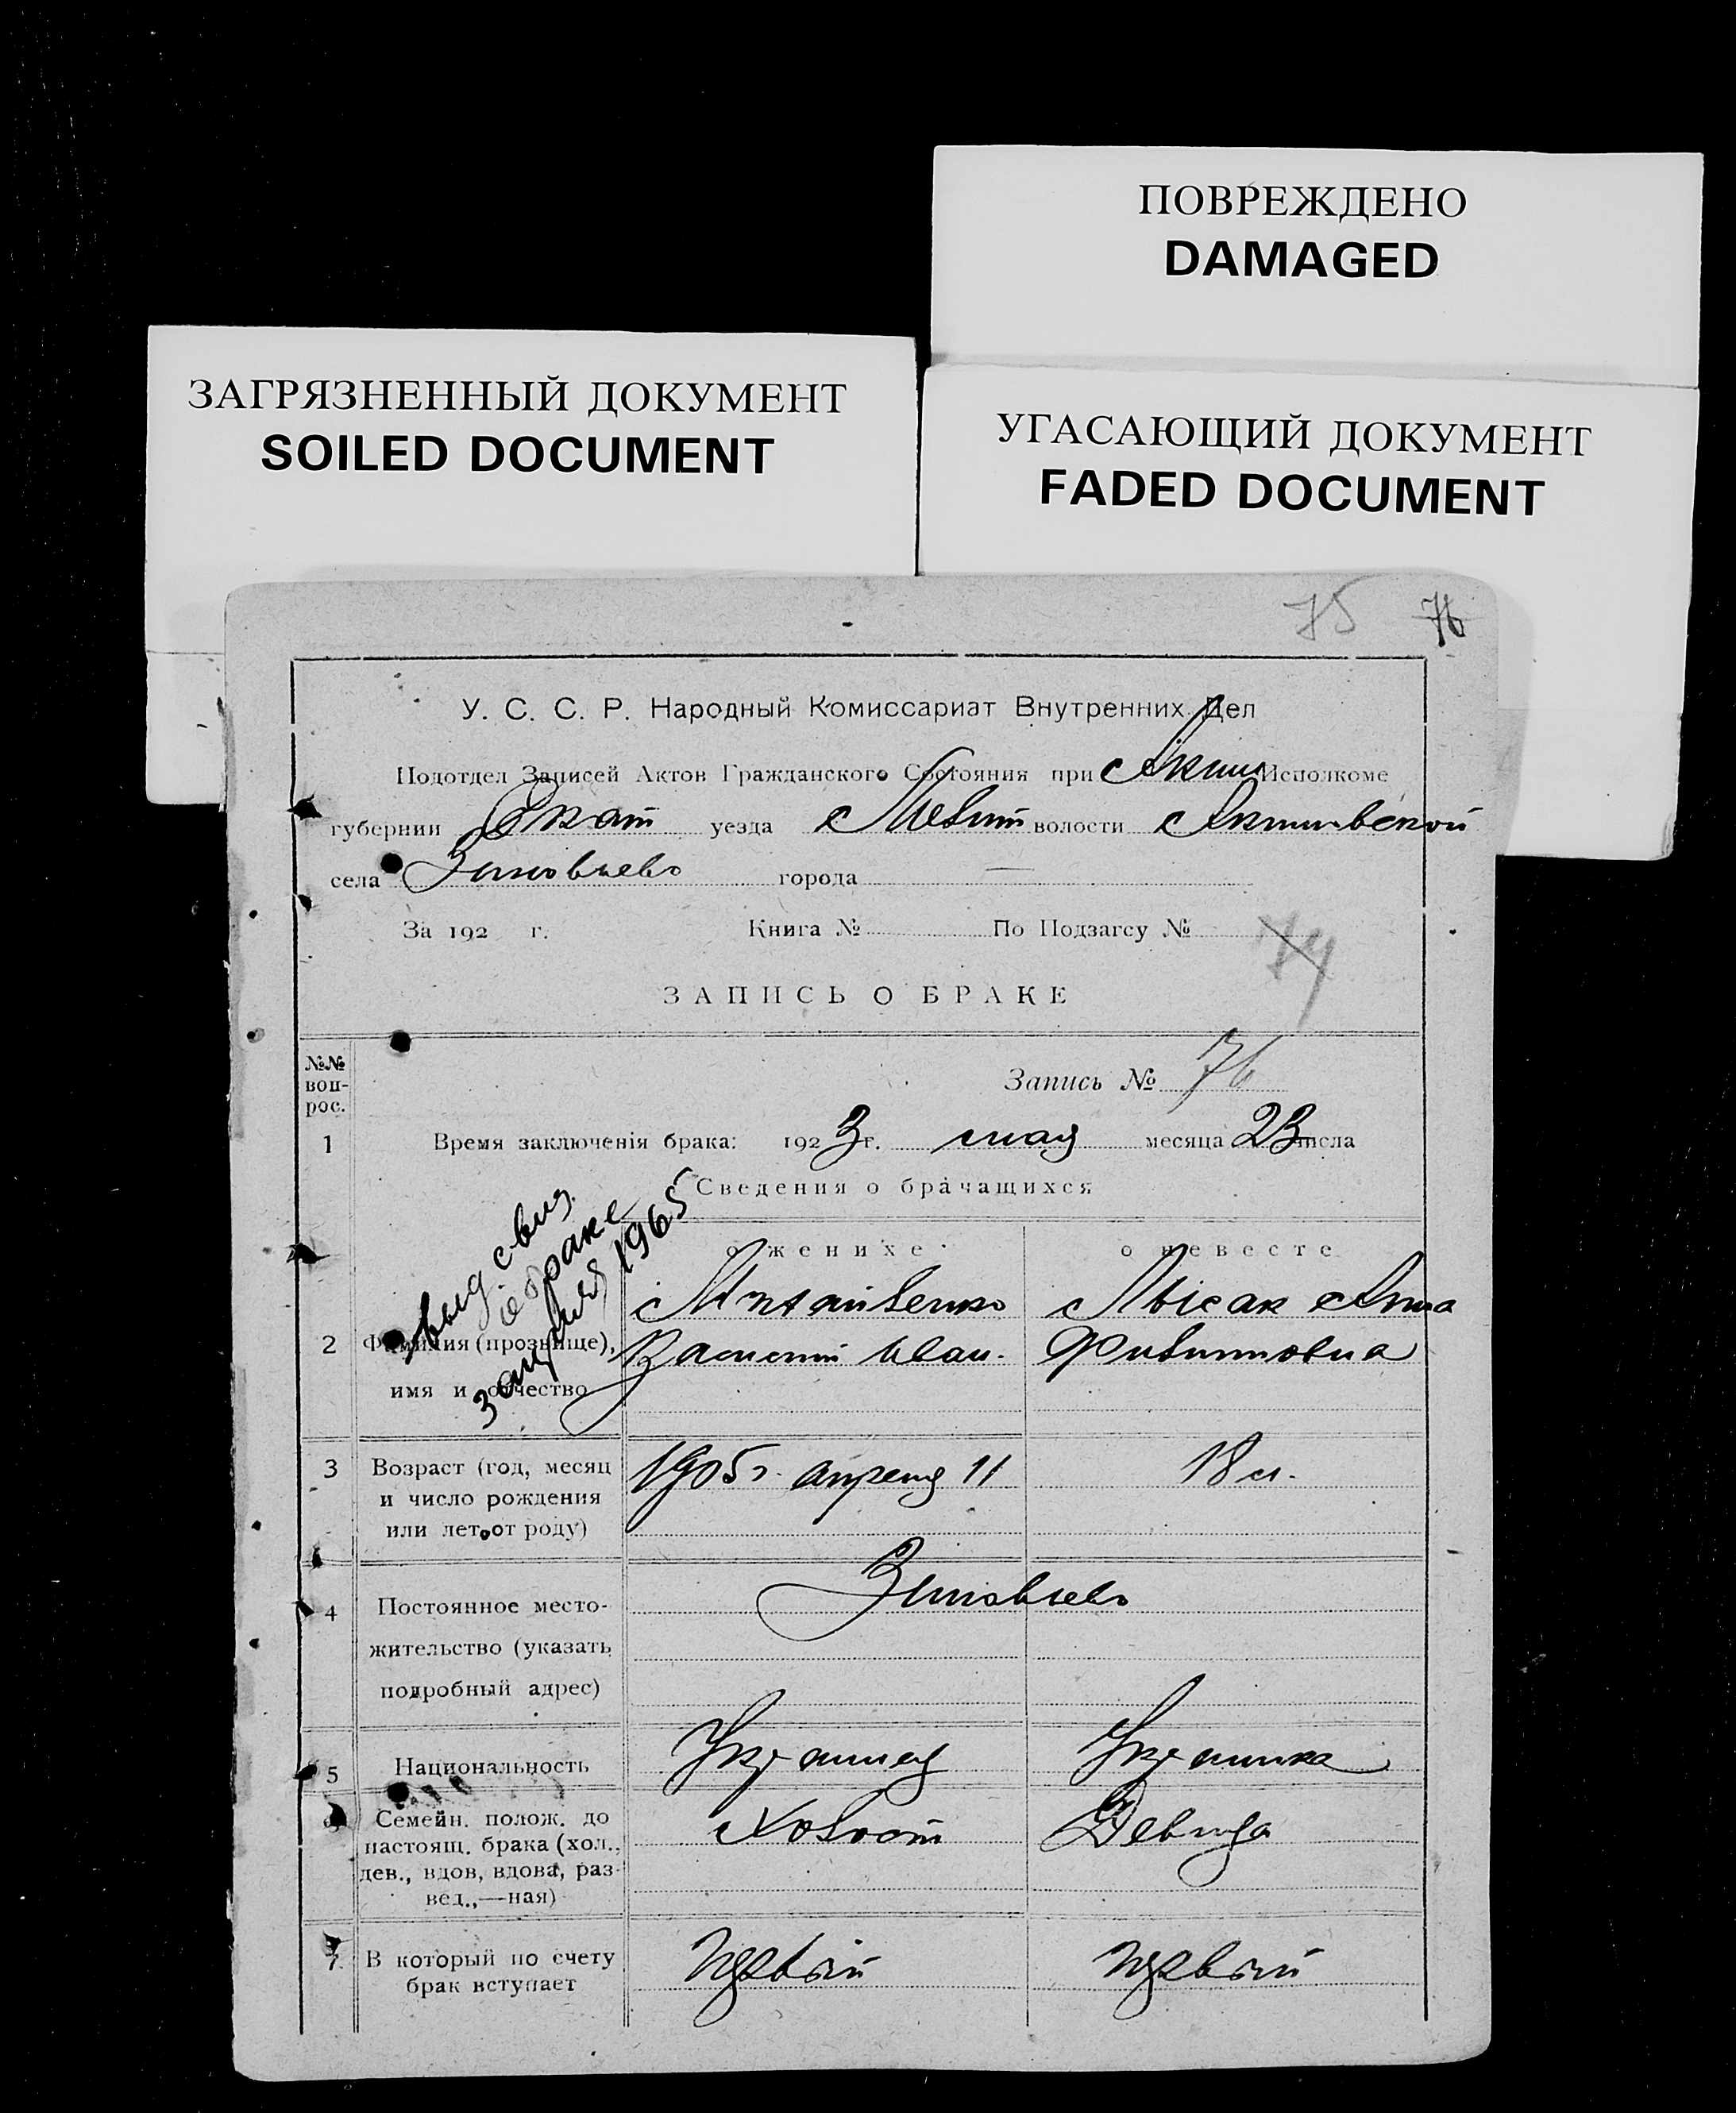 ПОВРЕЖДЕНО
DAMAGED
ЗАГРЯЗНЕННЫЙ ДОКУМЕНТ
SOILED DOCUMENT
УГАСАЮЩИЙ ДОКУМЕНТ
FADED DOCUMENT
75 76
У. С. С. Р. Народный Комиссариат Внутренних Дел
Подотдел Записей Актов Гражданского Состояния при Аким Исполкоме
губернии Екат уезда Мелит волости Акимовской
села Зиновьево города —
За 192 г. Книга № По Подзагсу №
74
ЗАПИСЬ О БРАКЕ
№№ воп-рос.
Запись № 76
1 Время заключенія брака: 1923 г. мая месяца 23 числа
Сведения о брачащихся
о женихе о невесте
выд свид
о браке
1965
2 Фамилия (прозвище), имя и отчество
Василий Иван. Лысак Анна
Филипповна
3 Возраст (год, месяц и число рождения или лет от роду)
1905 г. апреля 11 18 л.
4 Постоянное место-жительство (указать подробный адрес)
Зиновьево
5 Национальность Украинец Украинка
6 Семейн. полож. до настоящ. брака (хол., дев., вдов, вдова, раз-вед.,—ная)
Холост Девица
7 В который по счету брак вступает
первый первый